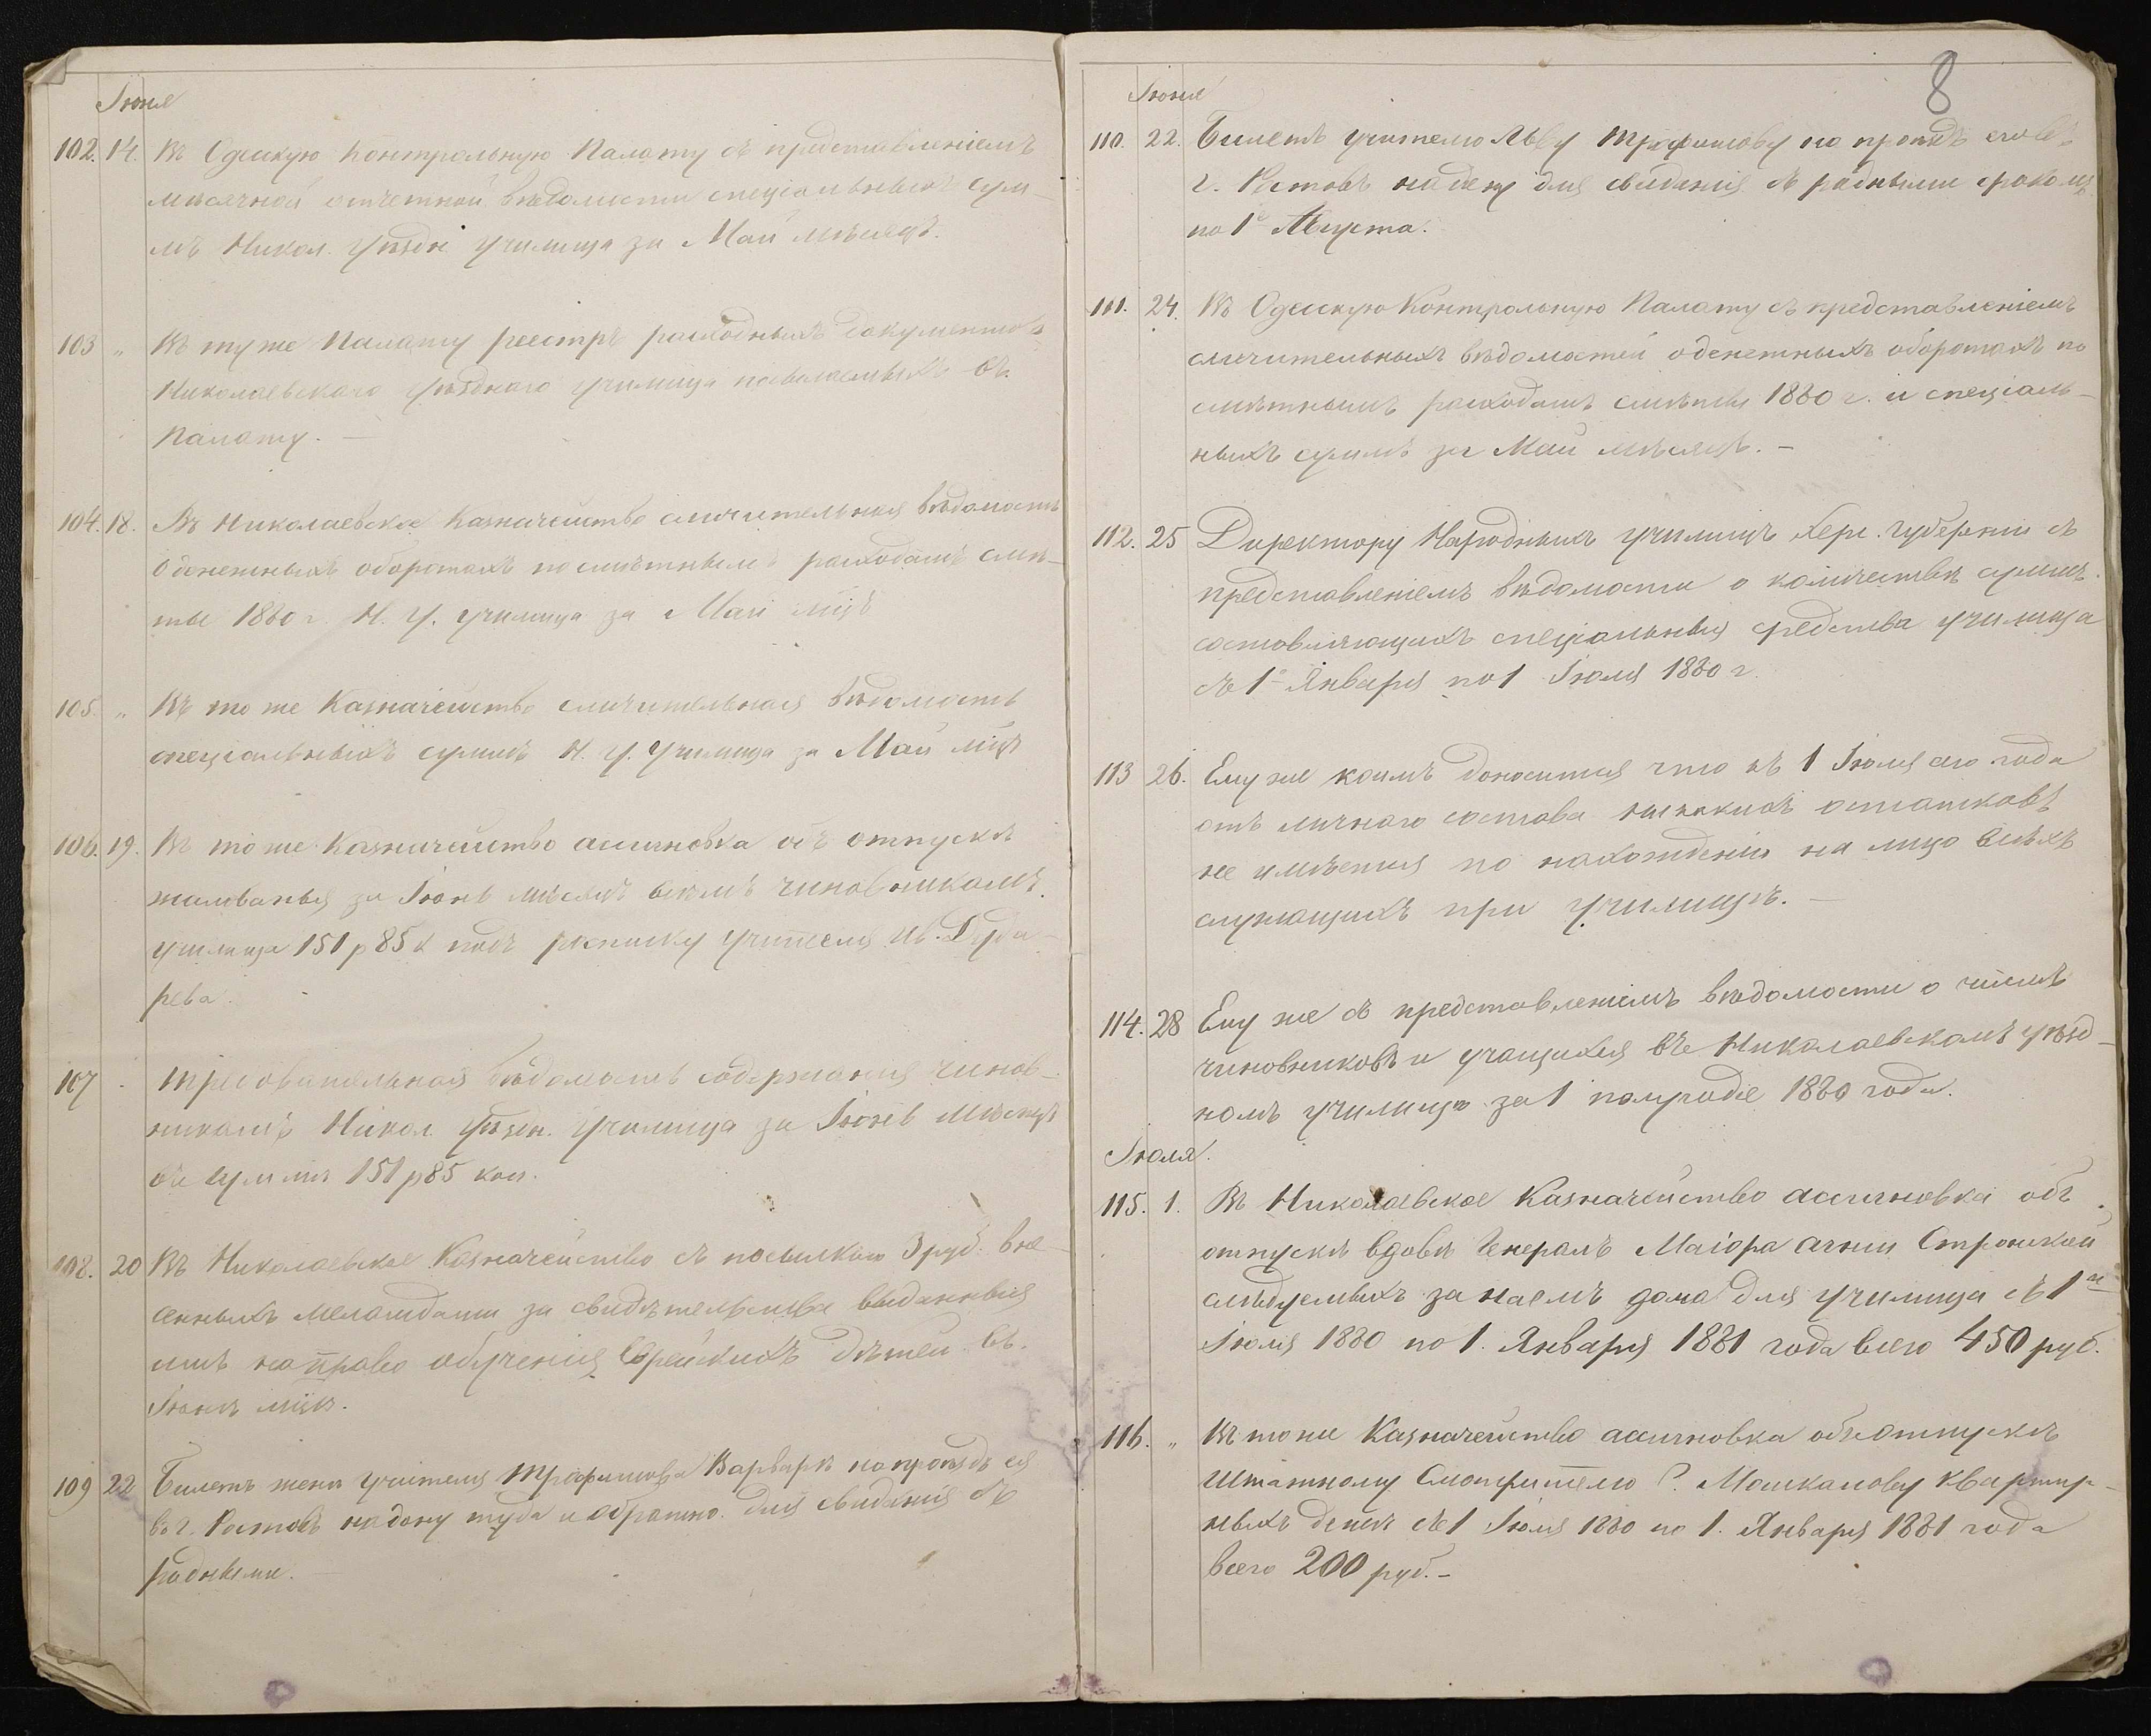 Іюня
102. 14. Въ Одесскую Контрольную Палату съ представленіемъ
мѣсячной отчетной вѣдомости спеціальныхъ сум-
мъ Никол. Уѣздн училища за Май мѣсяцъ.
103 „ Въ туже Палату реестръ расходныхъ документовъ
Николаевскаго Уѣзднаго училища посылаемыхъ въ
Палату. —
104. 18. Въ Николаевское Казначейство сличительная вѣдомость
о денежныхъ оборотахъ по смѣтнымъ расходамъ смѣ-
ты 1880 г. Н. У. училища за Май мцъ
105. „ Въ то же Казначейство сличительная вѣдомость
спеціальныхъ суммъ Н. У. Училища за Май мцъ
106. 19. Въ тоже Казначейство ассигновка объ отпускѣ
жалованья за Іюнь мѣсяцъ всѣмъ чиновникамъ
училища 151 р 85 к подъ росписку учителя Ив. Дуда-
рева.
107 Требовательная вѣдомость содержанія чинов-
никамъ Никол Уѣздн. Училища за Іюнь мѣсяцъ
въ суммѣ 151 р 85 коп.
108. 20 Въ Николаевское Казначейство съ посылкою 3 руб. вне-
сенныхъ меламдами за свидѣтельства выданныя
имъ на право обученія Еврейскихъ дѣтей въ
Іюнѣ мцѣ.
109 22 Билетъ женѣ учителя Трофимова Варварѣ на проѣздъ ея
въ г. Ростовъ на дону туда и обратно для свиданія съ
родными. —
8
Іюня
110. 22. Билетъ учителю Льву Трофимову на проѣздъ его въ
г. Ростовъ на дону для свиданія съ родными срокомъ
по 1е Августа.
111. 24. Въ Одесскую Контрольную Палату съ представленіемъ
сличительныхъ вѣдомостей о денежныхъ оборотахъ по
смѣтнымъ расходамъ смѣты 1880 г. и спеціаль-
ныхъ суммъ за Май мѣсяцъ. —
112. 25 Директору Народныхъ училищъ Херс. губерніи съ
представленіемъ вѣдомости о количествѣ суммъ
составляющихъ спеціальныя средства училища
съ 1е Января по 1 Іюля 1880 г.
113 26. Ему же коимъ доносится что къ 1 Іюля сего года
отъ личнаго состава никакихъ остатковъ
не имѣется по нахожденію на лицо всѣхъ
служащихъ при училищѣ. —
114. 28 Ему же съ представленіемъ вѣдомости о числѣ
чиновниковъ и учащихся въ Николаевскомъ уѣзд-
номъ училищѣ за 1 полугодіе 1880 года.
Іюля.
115. 1. Въ Николаевское Казначейство ассигновка объ
отпускѣ вдовѣ Генералъ Маіора Строжской
слѣдуемыхъ за наемъ дома для училища съ 1го
Іюля 1880 по 1. Января 1881 года всего 450 руб.
116. „ Въ тоже Казначейство ассигновка объ отпускѣ
Штатному Смотрителю Г. Машкалову квартир-
ныхъ денег съ 1 Іюля 1880 по 1. Января 1881 года
всего 200 руб. —